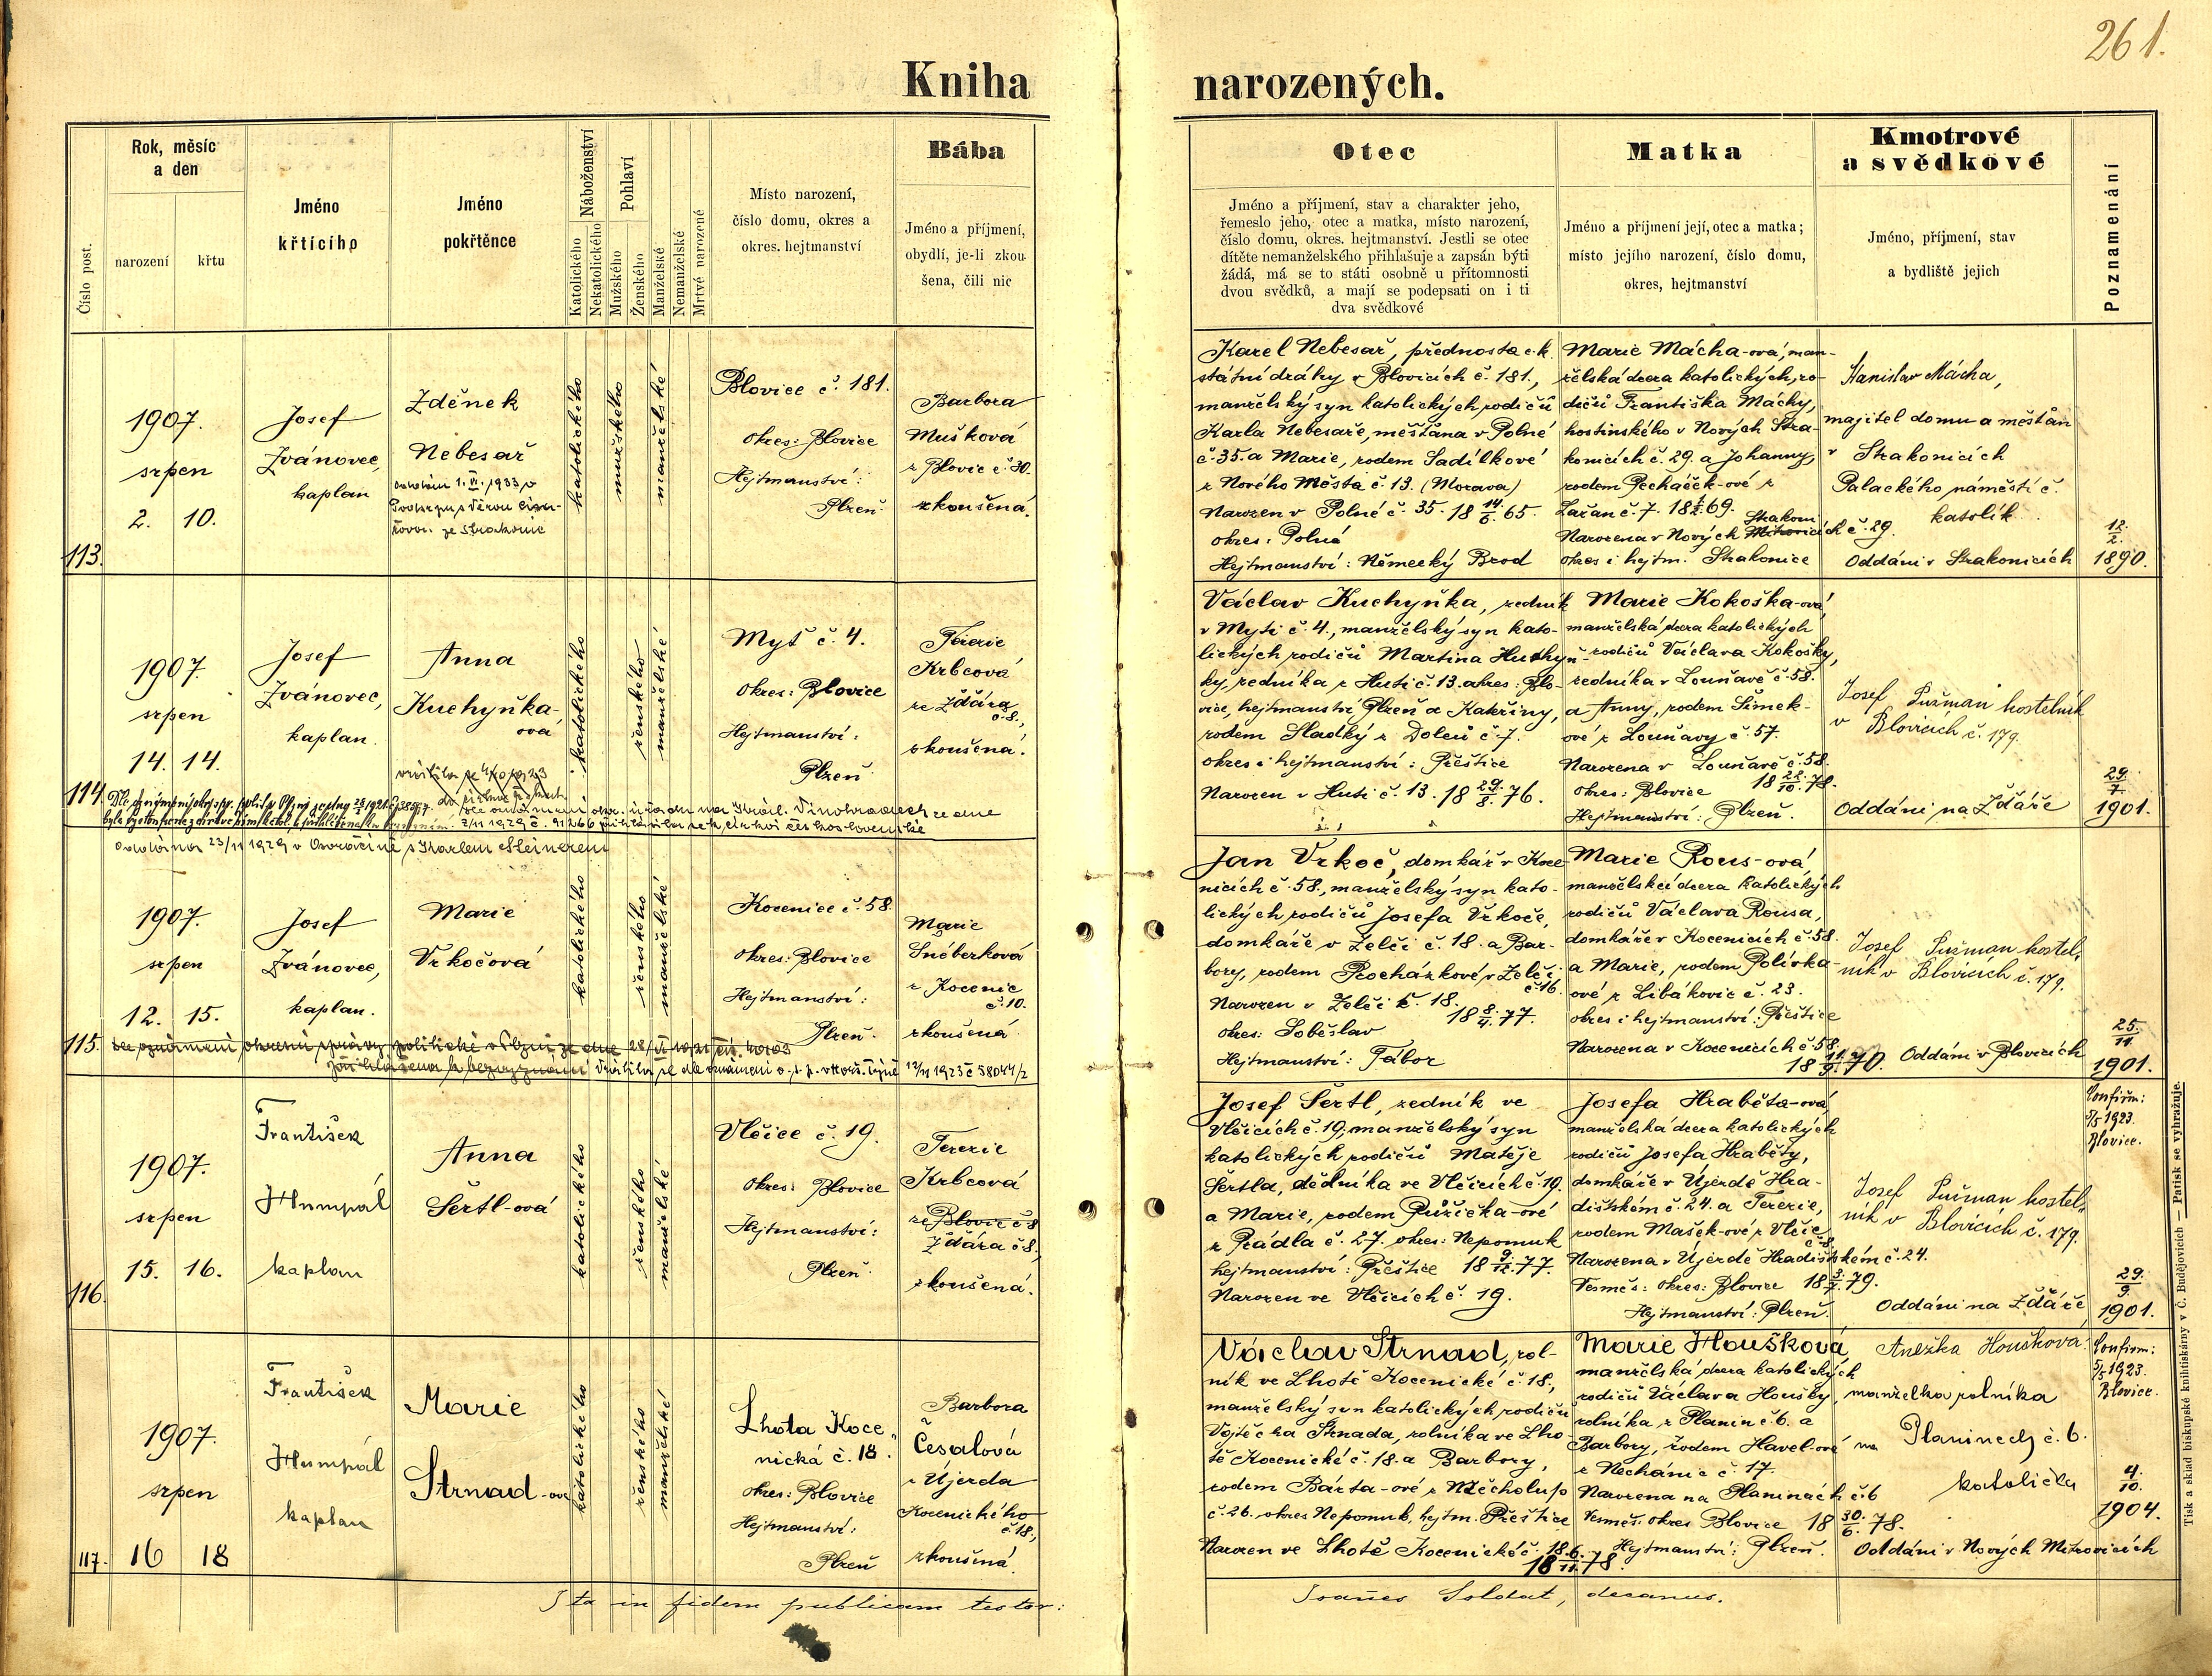 261.
Kniha narozených.
Číslo post.
Rok, měsíc
a den
narození
křtu
Jméno
křtícího
Jméno
pokřtěnce
Náboženství
Katolického
Nekatolického
Pohlaví
Mužského
Ženského
Manželské
Nemanželské
Mrtvě narozené
Místo narození,
číslo domu, okres a
okres. hejtmanství
Bába
Jméno a příjmení,
obydlí, je-li zkou-
šena, čili nic
Otec
Jméno a příjmení, stav a charakter jeho,
řemeslo jeho, otec a matka, místo narození,
číslo domu, okres. hejtmanství. Jestli se otec
dítěte nemanželského přihlašuje a zapsán býti
žádá, má se to státi osobně u přítomnosti
dvou svědků, a mají se podepsati on i ti
dva svědkové
Matka
Jméno a příjmení její, otec a matka;
místo jejího narození, číslo domu,
okres, hejtmanství
Kmotrové
a svědkové
Jméno, příjmení, stav
a bydliště jejich
Poznamenání
113.
1907.
srpen
2. 10.
Josef
Zvánovec,
kaplan
Zděnek
Nebesař
oddán 1. VI. 1933 v
ze Strakonic
katolického
mužského
manželské
Blovice č. 181.
Okres: Blovice
Hejtmanství:
Plzeň
Barbora
Mušková
z Blovic č. 30.
zkoušená.
Karel Nebesař, přednosta c. k.
státní dráhy v Blovicích č. 181.,
manželský syn katolických rodičů
Karla Nebesaře, měšťana v Polné
č. 35. a Marie, rodem Sadílkové
z Nového Města č. 13. (Morava)
Narozen v Polné č. 35. 18 14/6. 65.
okres: Polná
Hejtmanství: Německý Brod
Marie Mácha-ová, man-
želská dcera katolických ro-
dičů Františka Máchy,
hostinského v Nových Stra-
konicích č. 29. a Johanny,
rodem Pecháček-ové z
Lažan č. 7. 69.
Narozena v Nových Strakonicích č. 29.
okres i hejtm. Strakonice
Stanislav Mácha,
majitel domu a měšťan
v Strakonicích
Palackého náměstí č.
katolík.
Oddáni v Strakonicích
12./2.
1890.
114.
1907.
srpen
14. 14.
Josef
Zvánovec,
kaplan.
Anna
Kuchyňka-
ová
katolického
ženského
manželské
Myť č. 4.
Okres: Blovice
Hejtmanství:
Plzeň
Terezie
Krbcová
ze Ždára
č. 8.,
zkoušená.
církvi československé
oddána 23/11 1929 v s Karlem Steinerem
Václav Kuchyňka, zedník
v Myti č. 4., manželský syn kato-
lických rodičů Martina Kuchyň-
ky, zedníka z Hutí č. 13. okres: Blo-
vice, hejtmanství Plzeň a Kateřiny,
rodem Sladký z Dolců č. 7.
okres i hejtmanství: Přeštice
Narozen v Huti č. 13. 18 29./8. 76.
Marie Kokoška-ová,
manželská dcera katolických
rodičů Václava Kokošky,
zedníka v Louňavě č. 58.
a Anny, rodem Šimek-
ové z Louňavy č. 57.
Narozena v Louňavě č. 58.
okres: Blovice 18 22./10. 78.
Hejtmanství: Plzeň.
Josef Pužman kostelník
v Blovicích č. 179.
Oddáni na Ždáře
29./7.
1901.
115.
1907.
srpen
12. 15.
Josef
Zvánovec,
kaplan.
Marie
Vrkočová
katolického
ženského
manželské
Kocenice č. 58.
Okres: Blovice
Hejtmanství:
Plzeň.
Marie
Snéberková
z Kocenic
č. 10.
zkoušená
dle oznámení okresní správy politické v Plzni ze dne
12/11 1923 č 58044/2
Jan Vrkoč, domkář v Koce-
nicích č. 58., manželský syn kato-
lických rodičů Josefa Vrkoče,
domkáře v Želči č. 18. a Bar-
bory, rodem Procházkové v Želči
č. 16.
Narozen v Želči č. 18.
18 8./4. 77.
okres: Soběslav
Hejtmanství: Tábor
Marie Rous-ová
manželská dcera katolických
rodičů Václava Rousa,
domkáře v Kocenicích č. 58.
a Marie, rodem Polívka-
ové z Libákovic č. 23.
okres i hejtmanství: Přeštice
Narozena v Kocenicích č. 58.
Josef Pužman kostel-
ník v Blovicích č. 179.
Oddáni v Blovicích
25./11.
1901.
116.
1907.
srpen
15. 16.
František
Humpál
kaplan
Anna
Šertl-ová
katolického
ženského
manželské
Vlčice č. 19.
Okres: Blovice
Hejtmanství:
Plzeň
Terezie
Krbcová
ze Blovic č 8
Ždára č 8.,
zkoušená.
Josef Šertl, zedník ve
Vlčicích č. 19, manželský syn
katolických rodičů Matěje
Šertla, dědníka ve Vlčicích č. 19.
a Marie, rodem Růžička-ové
z Prádla č. 27. okres: Nepomuk
hejtmanství: Přeštice 18 9./12. 77.
Narozen ve Vlčicích č. 19.
Josefa Hraběta-ová,
manželská dcera katolických
rodičů Josefa Hraběty,
domkáře v Újezdě Hra-
dišťském č. 24. a Terezie,
rodem Mašek-ové z Vlčic
č. 8.
Narozena v Újezdě Hradišťském č. 24.
Tesměř: okres: Blovice 79.
Hejtmanství: Plzeň.
Josef Pužman kostel-
ník v Blovicích č. 179.
Oddáni na Ždáře
Confirm:
5/5 1923.
Blovice.
29./9.
1901.
117.
1907.
srpen
16 18
František
Humpál
kaplan
Marie
Strnad-ová
katolického
ženského
manželské
Lhota Koce-
nická č. 18.
okres: Blovice
Hejtmanství:
Plzeň
Barbora
Česalová
z Újezda
Kocenického
č 18.,
zkoušená.
Václav Strnad, rol-
ník ve Lhotě Kocenické č. 18.,
manželský syn katolických rodičů
Vojtěcha Strnada, rolníka ve Lho-
tě Kocenické č. 18. a Barbory,
rodem Bárta-ové z Měcholup
č. 26. okres Nepomuk, hejtm. Přeštice
Narozen ve Lhotě Kocenické č. 18.
18 6./11. 78.
Marie Houšková
manželská dcera katolických
rodičů Václava Houšky,
rolníka z Planin č. 6. a
Barbory, rodem Havel-ové
z Nechanic č. 17.
Narozena na Planinách č. 6
okres Blovice 18 30./6. 78.
Hejtmanství: Plzeň.
Anežka Houšková
manželka rolníka
na Planinech č. 6.
katolička
Oddáni v Nových Mitrovicích
Confirm:
5/5 1923.
Blovice.
4./10.
1904.
Ita in fidem publicam testor:
Joanes Soldat, decanus.
Tisk a sklad biskupské knihtiskárny v Č. Budějovicích — Patisk se vyhražuje.